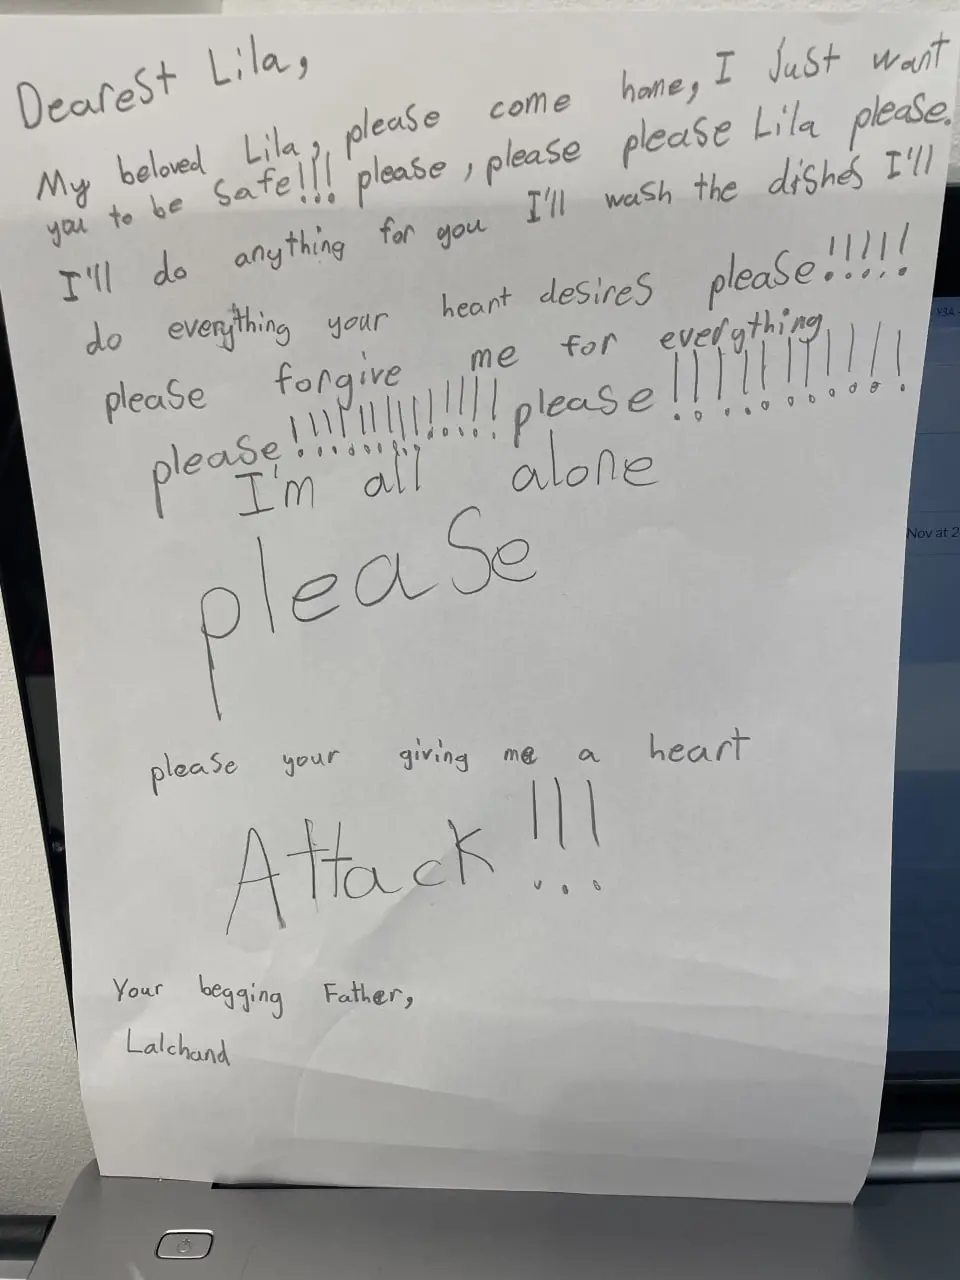 Dearest Lila,
My beloved Lila, please come home, I Just want
you to be Safe!!! please, please please Lila please.
I'll do anything for you I'll wash the dishes I'll
do everything your heart desires please!!!!!
please forgive me for everything
please!!!!!!!!!!!! please!!!!!!!!!!!
I'm all alone
please
please your giving me a heart
Attack!!!
Your begging Father,
Lalchand
Nov at 2